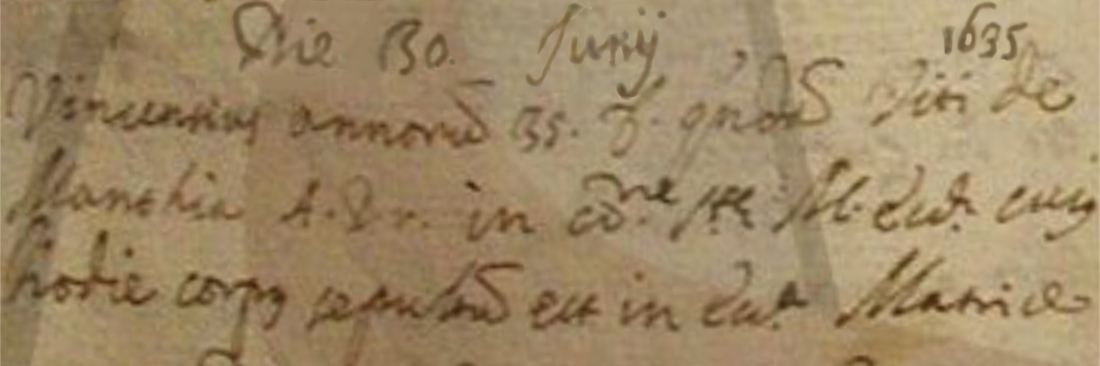 Die 30. Junij 1635
Vincentius annorũ 35. f. qnda͂ Viti de
Manchia A. D. r. in cõ.ne Ste M. Eccl. cuiꝰ
hodie corpꝰ sepultũ est in Eccl.a Matrice